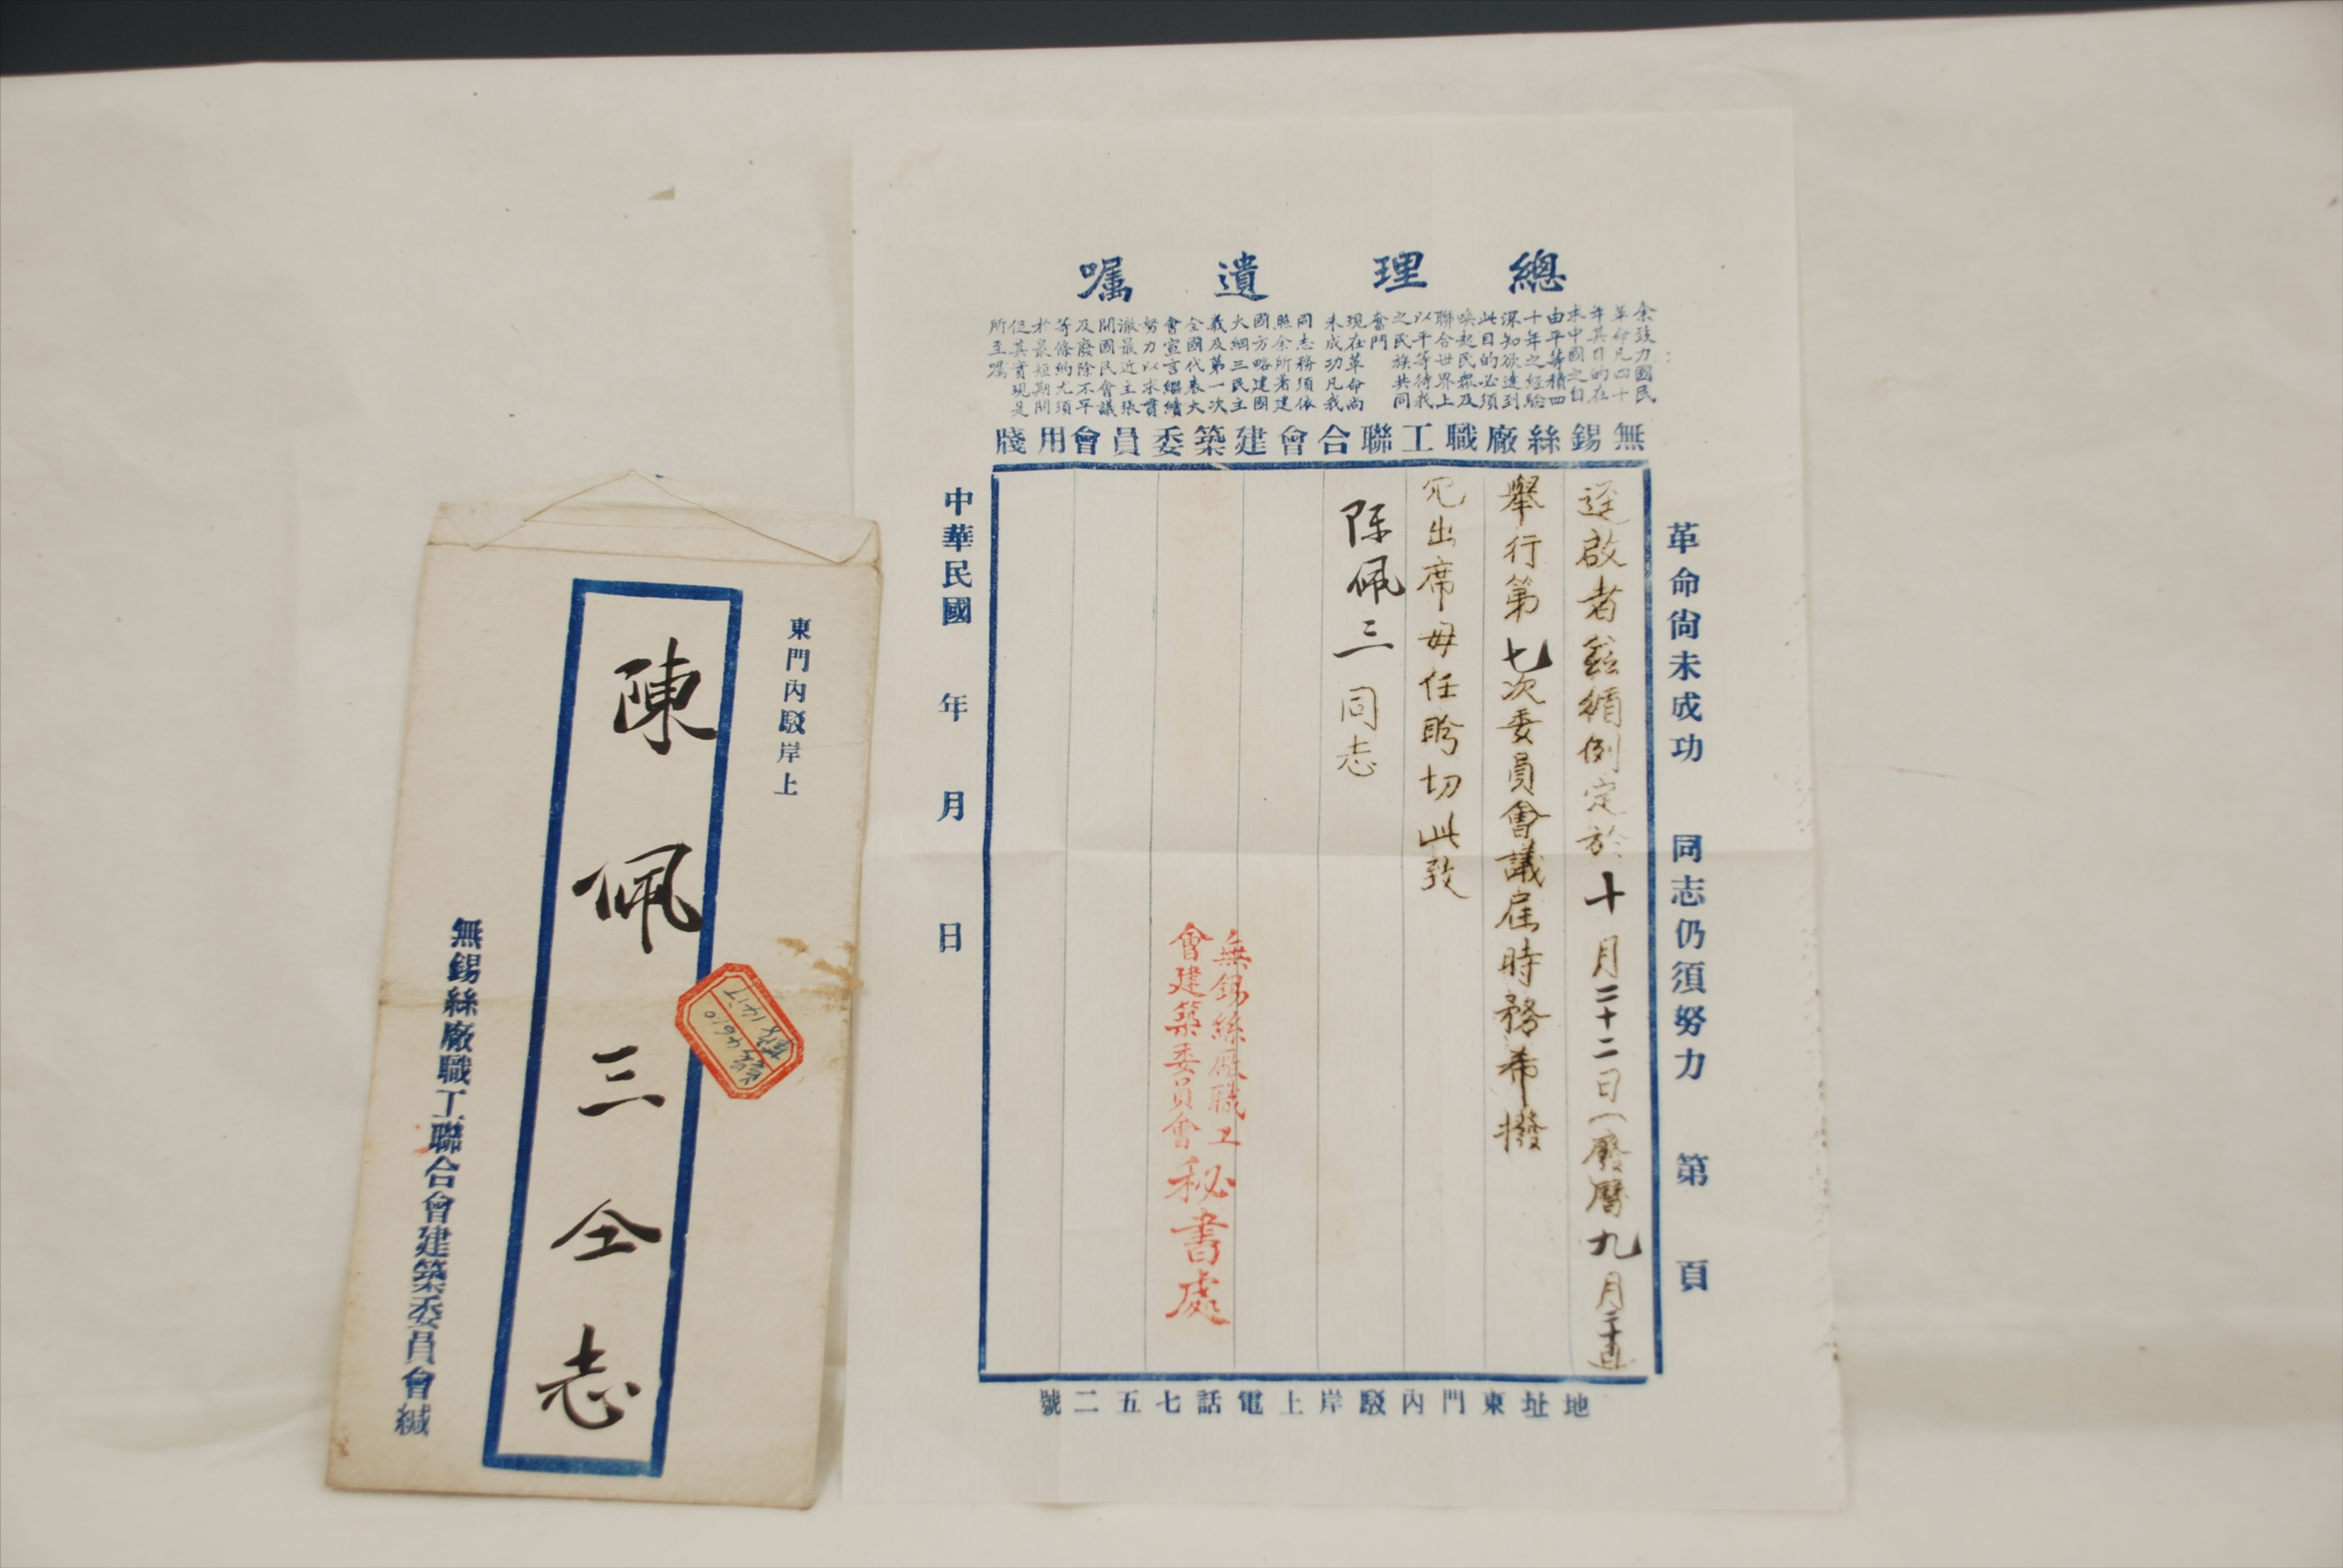 總理遺囑
余致力國民
革命凡四十
年其目的在
求中國之自
由平等積四
十年之經驗
深知欲達到
此目的必須
喚起民衆及
聯合世界上
以平等待我
之民族共同
奮鬥
現在革命尚
未成功凡我
同志務須依
照余所著建
國方略建國
大綱三民主
義及第一次
全國代表大
會宣言繼續
努力以求貫
澈最近主張
開國民會議
及廢除不平
等條約尤須
於最短期間
促其實現是
所至囑
無錫絲廠職工聯合會建築委員會用牋
革命尙未成功 同志仍須努力 第 頁
逕啟者茲循例定於十月二十二日(廢曆九月二十
舉行第七次委員會議屆時務希撥
冗出席毋任盼切此致
陳佩三同志
無錫絲厰職工
會建築委員會
秘書處
中華民國 年 月 日
地址東門內駁岸上電話七五二號
東門內駁岸上
陳佩三仝志
無錫絲廠職工聯合會建築委員會緘